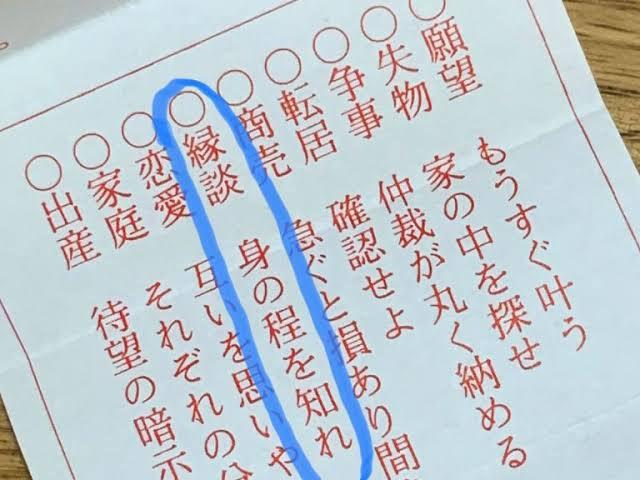 ○願望 もうすぐ叶う
○失物 家の中を探せ
○争事 仲裁が丸く納める
○転居 確認せよ
○商売 急ぐと損あり間
○縁談 身の程を知れ
○恋愛 互いを思いや
○家庭 それぞれの分
○出産 待望の暗示